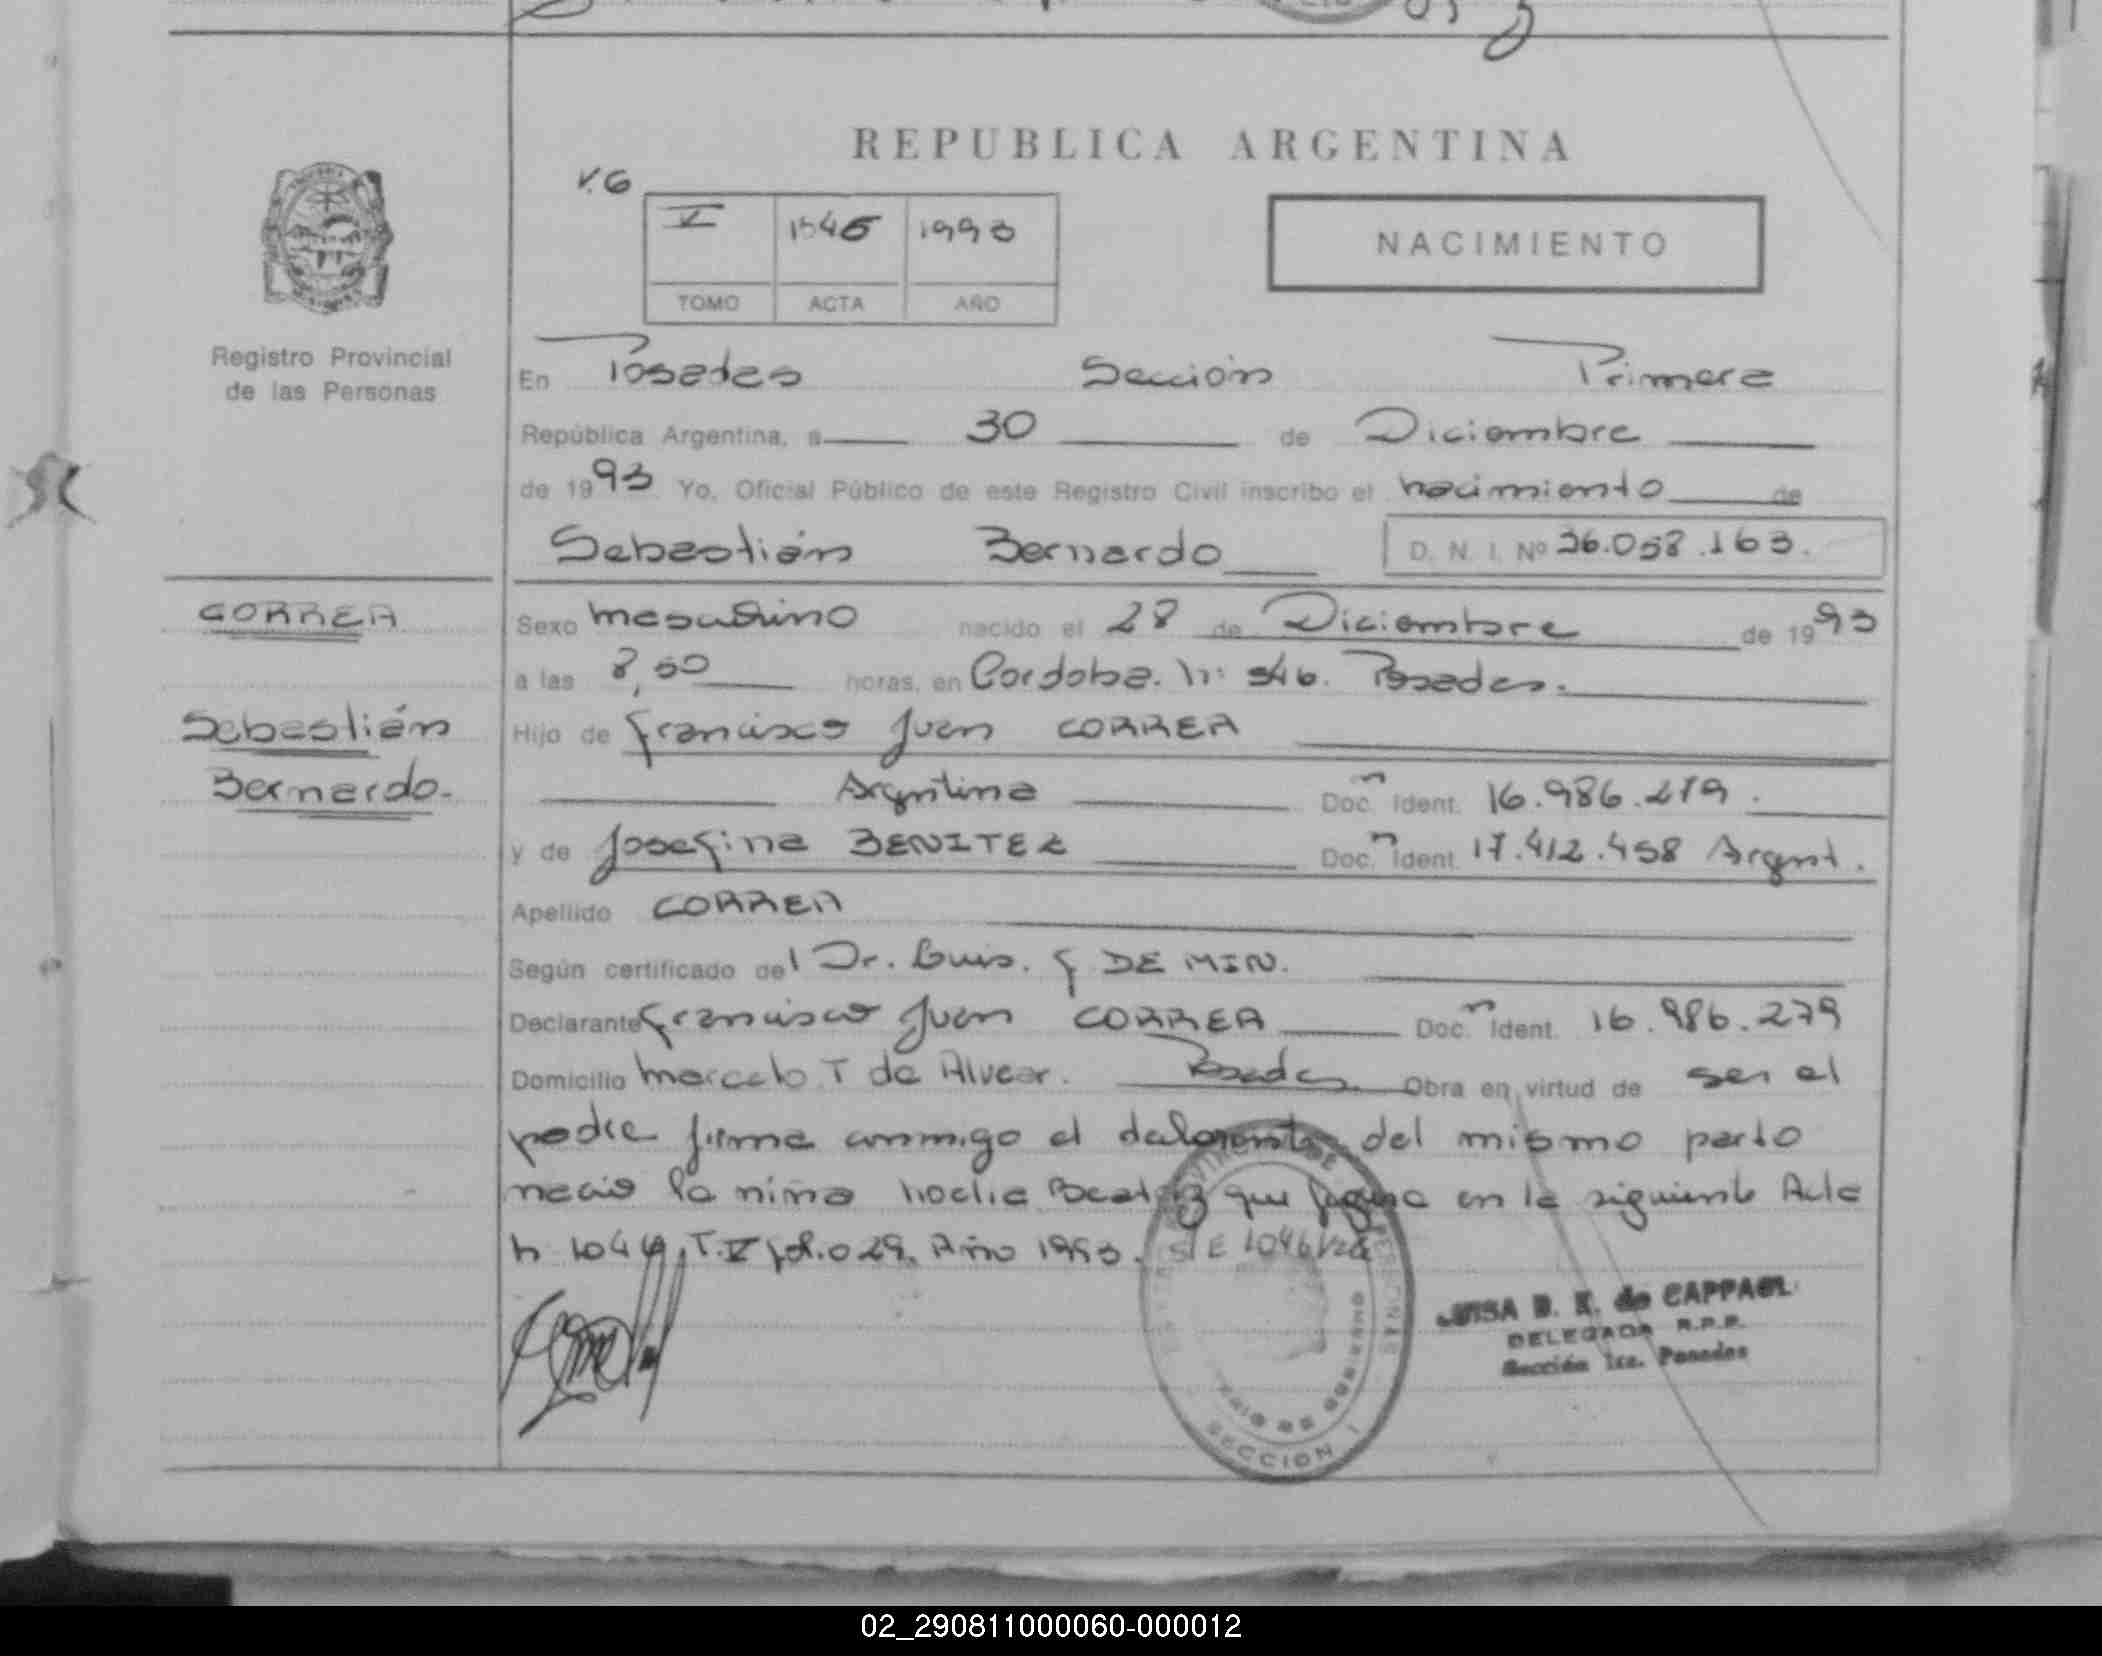 REPUBLICA ARGENTINA
V.G
V 1045 1993
TOMO ACTA AÑO
NACIMIENTO
Registro Provincial
de las Personas
En Posadas Sección Primera
República Argentina, a 30 de Diciembre
de 1993 Yo, Oficial Público de este Registro Civil inscribo el nacimiento de
Sebastián Bernardo D. N. I. Nº 36.058.163.
CORREA
Sexo masculino nacido el 28 de Diciembre de 1993
a las 8,50 horas, en Cordoba. Nº 546. Posadas.
Sebastián
Hijo de Francisco Juan CORREA
Bernardo.
Argentina Doc. Ident. 16.986.279.
y de Josefina BENITEZ Doc. Ident. 17.412.458 Argent.
Apellido CORREA
Según certificado del Dr. Luis. F DE MIN.
Declarante Francisco Juan CORREA Doc. Ident. 16.986.279
Domicilio Marcelo T de Alvear. Posadas. Obra en virtud de ser el
padre firma conmigo el declarante del mismo parto
nacio la niña Noelia Beatriz que figura en la siguiente Acta
n 1046, T.V fol.029. Año 1993. S/E 1046 Vale
LUISA B. K. de CAPPAGLI
DELEGADA R.P.P.
Sección 1ra. Posadas
SECCION 1
02_290811000060-000012